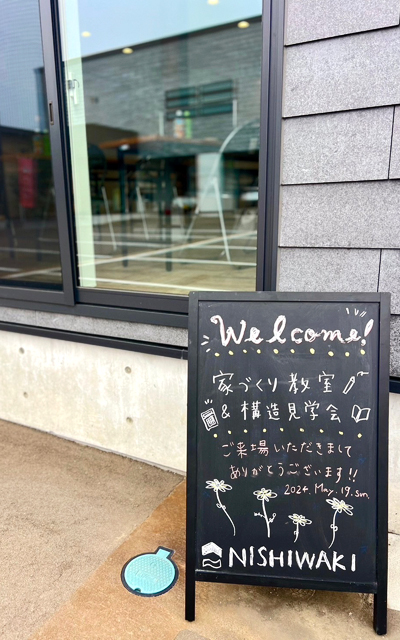 Welcome!
家づくり教室
& 構造見学会
ご来場いただきまして
ありがとうございます!!
2024. May. 19. sun.
NISHIWAKI